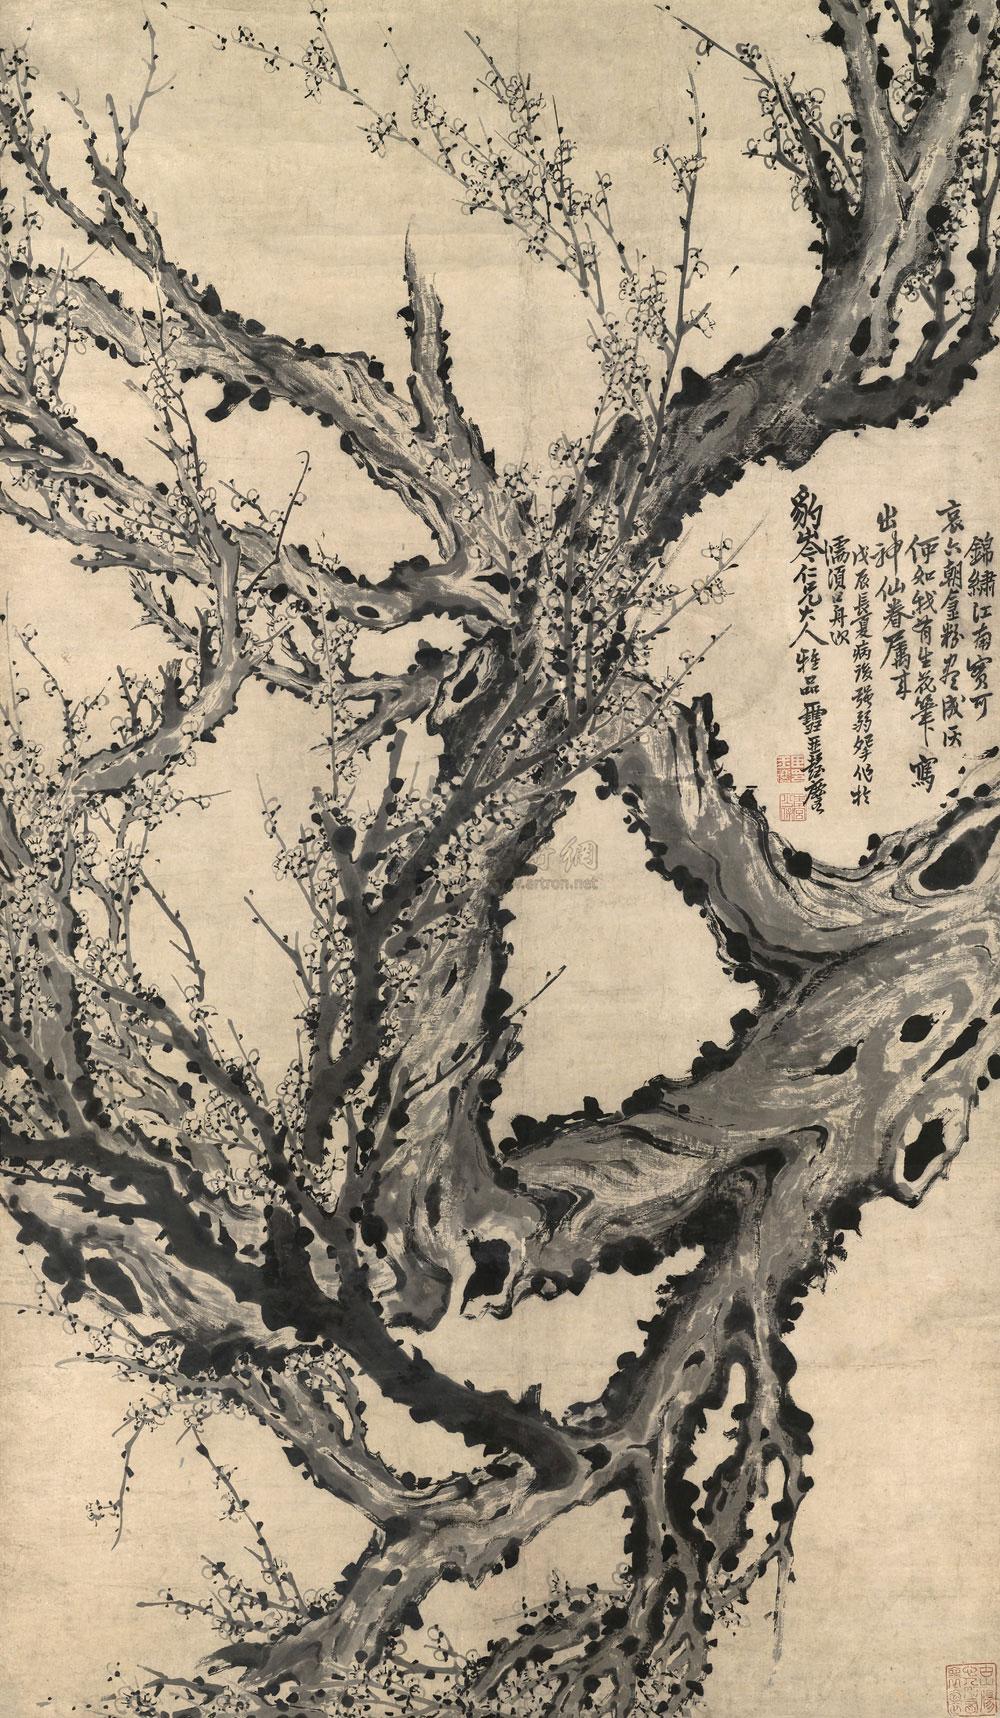 錦繡江南實可
哀六朝金粉盡成灰
何如我有生花筆寫
出神仙眷屬來
戊辰長夏病後強弱於
濡須口舟次
豹岑仁兄大人雅品雪琴彭玉麐
網
www.artron.net